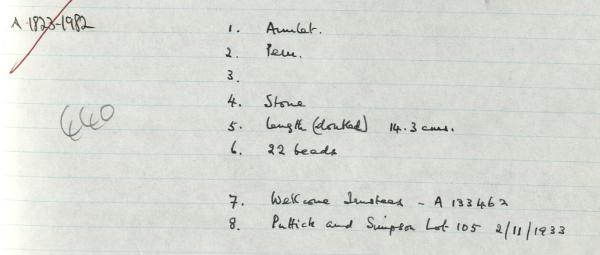 A 1823-1982
1. Amulet.
2. Peru.
3.
4. Stone
440
5. length (doubled) 14.3 cms.
6. 22 beads
7. Wellcome Trustees - A 133462
8. Puttick and Simpson Lot 105 2/11/1933